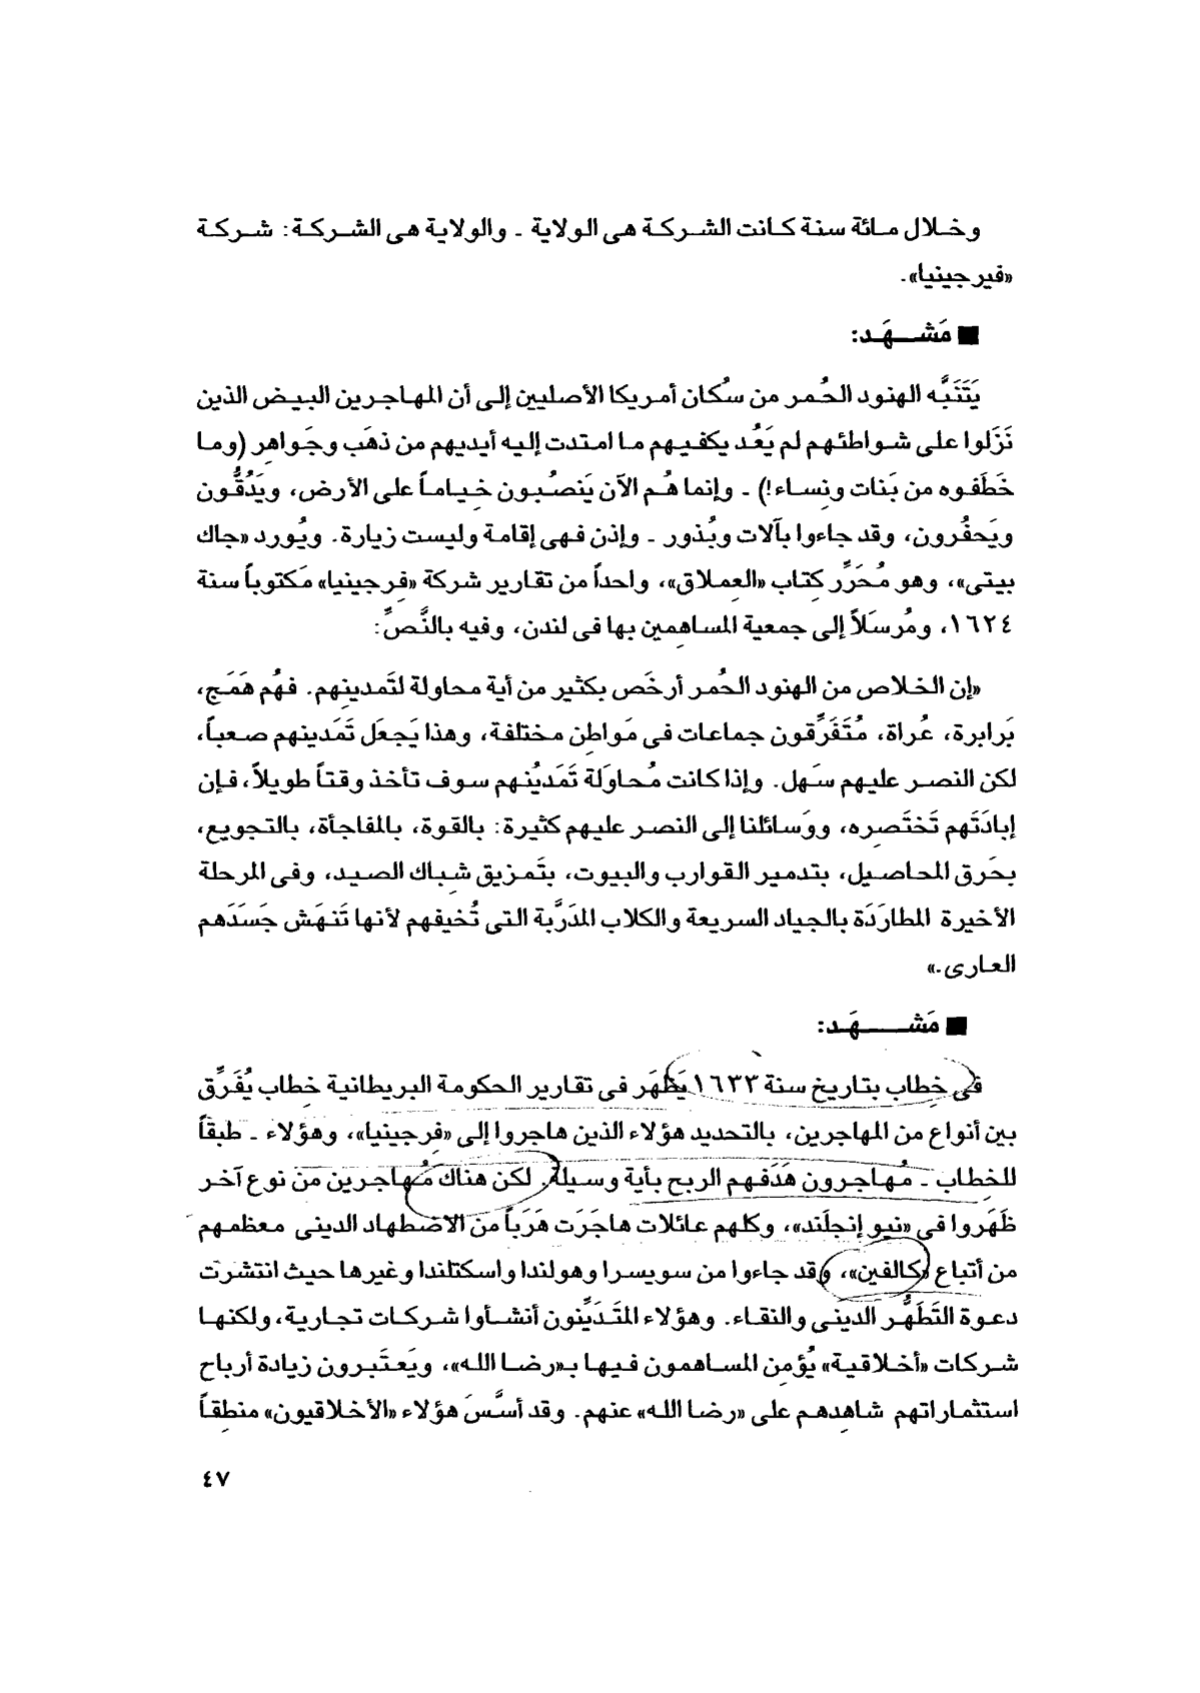 وخلال مائة سنة كانت الشركة هى الولاية ـ والولاية هى الشركة: شركة
«فيرجينيا».
■ مَشهَد:
يَتَنَبَّه الهنود الحُمر من سُكان أمريكا الأصليين إلى أن المهاجرين البيض الذين
نَزَلوا على شواطئهم لم يَعُد يكفيهم ما امتدت إليه أيديهم من ذهَب وجَواهِر (وما
خَطَفوه من بَنات ونِساء!) ـ وإنما هُم الآن يَنصُبون خِياماً على الأرض، ويَدُقُّون
ويَحفُرون، وقد جاءوا بآلات وبُذور ـ وإذن فهى إقامة وليست زيارة. ويُورد «جاك
بيتى»، وهو مُحَرِّر كِتاب «العِملاق»، واحداً من تقارير شركة «فِرجينيا» مَكتوباً سنة
١٦٢٤، ومُرسَلاً إلى جمعية المساهِمين بها فى لندن، وفيه بالنَّصِّ:
«إن الخلاص من الهنود الحُمر أرخَص بكثير من أية محاولة لتَمدينِهم. فهُم هَمَج،
بَرابرة، عُراة، مُتَفَرِّقون جماعات فى مَواطِن مختلفة، وهذا يَجعَل تَمَدينهم صعباً،
لكن النصر عليهم سَهل. وإذا كانت مُحاوَلة تَمَديُنهم سوف تأخذ وقتاً طويلاً، فإن
إبادَتَهم تَختَصِره، ووَسائلنا إلى النصر عليهم كثيرة: بالقوة، بالمفاجأة، بالتجويع،
بحَرق المحاصيل، بتدمير القوارب والبيوت، بتَمزيق شِباك الصيد، وفى المرحلة
الأخيرة المطارَدَة بالجياد السريعة والكلاب المدَرَّبة التى تُخيفهم لأنها تَنهَش جَسَدَهم
العارى.»
■ مَشهَد:
فى خِطاب بتاريخ سنة ١٦٣٣ يَظهَر فى تقارير الحكومة البريطانية خطاب يُفَرِّق
بين أنواع من المهاجرين، بالتحديد هؤلاء الذين هاجروا إلى «فِرجينيا»، وهؤلاء ـ طبقاً
للخطاب ـ مُهاجرون هَدَفهم الربح بأية وسيلة. لكن هناك مُهاجرين من نوع آخر
ظَهَروا فى «نيو إنجلَند»، وكلهم عائلات هاجَرَت هَرَباً من الاضطهاد الدينى معظمهم
من أتباع «كالفين»، وقد جاءوا من سويسرا وهولندا واسكتلندا وغيرها حيث انتشرت
دعوة التَطَهُّر الدينى والنقاء. وهؤلاء المتَدَيِّنون أنشأوا شركات تجارية، ولكنها
شركات «أخلاقية» يُؤمِن المساهمون فيها بـ«رضا الله»، ويَعتَبرون زيادة أرباح
استثماراتهم شاهِدهم على «رضا الله» عنهم. وقد أسَّسَ هؤلاء «الأخلاقيون» منطقاً
٤٧